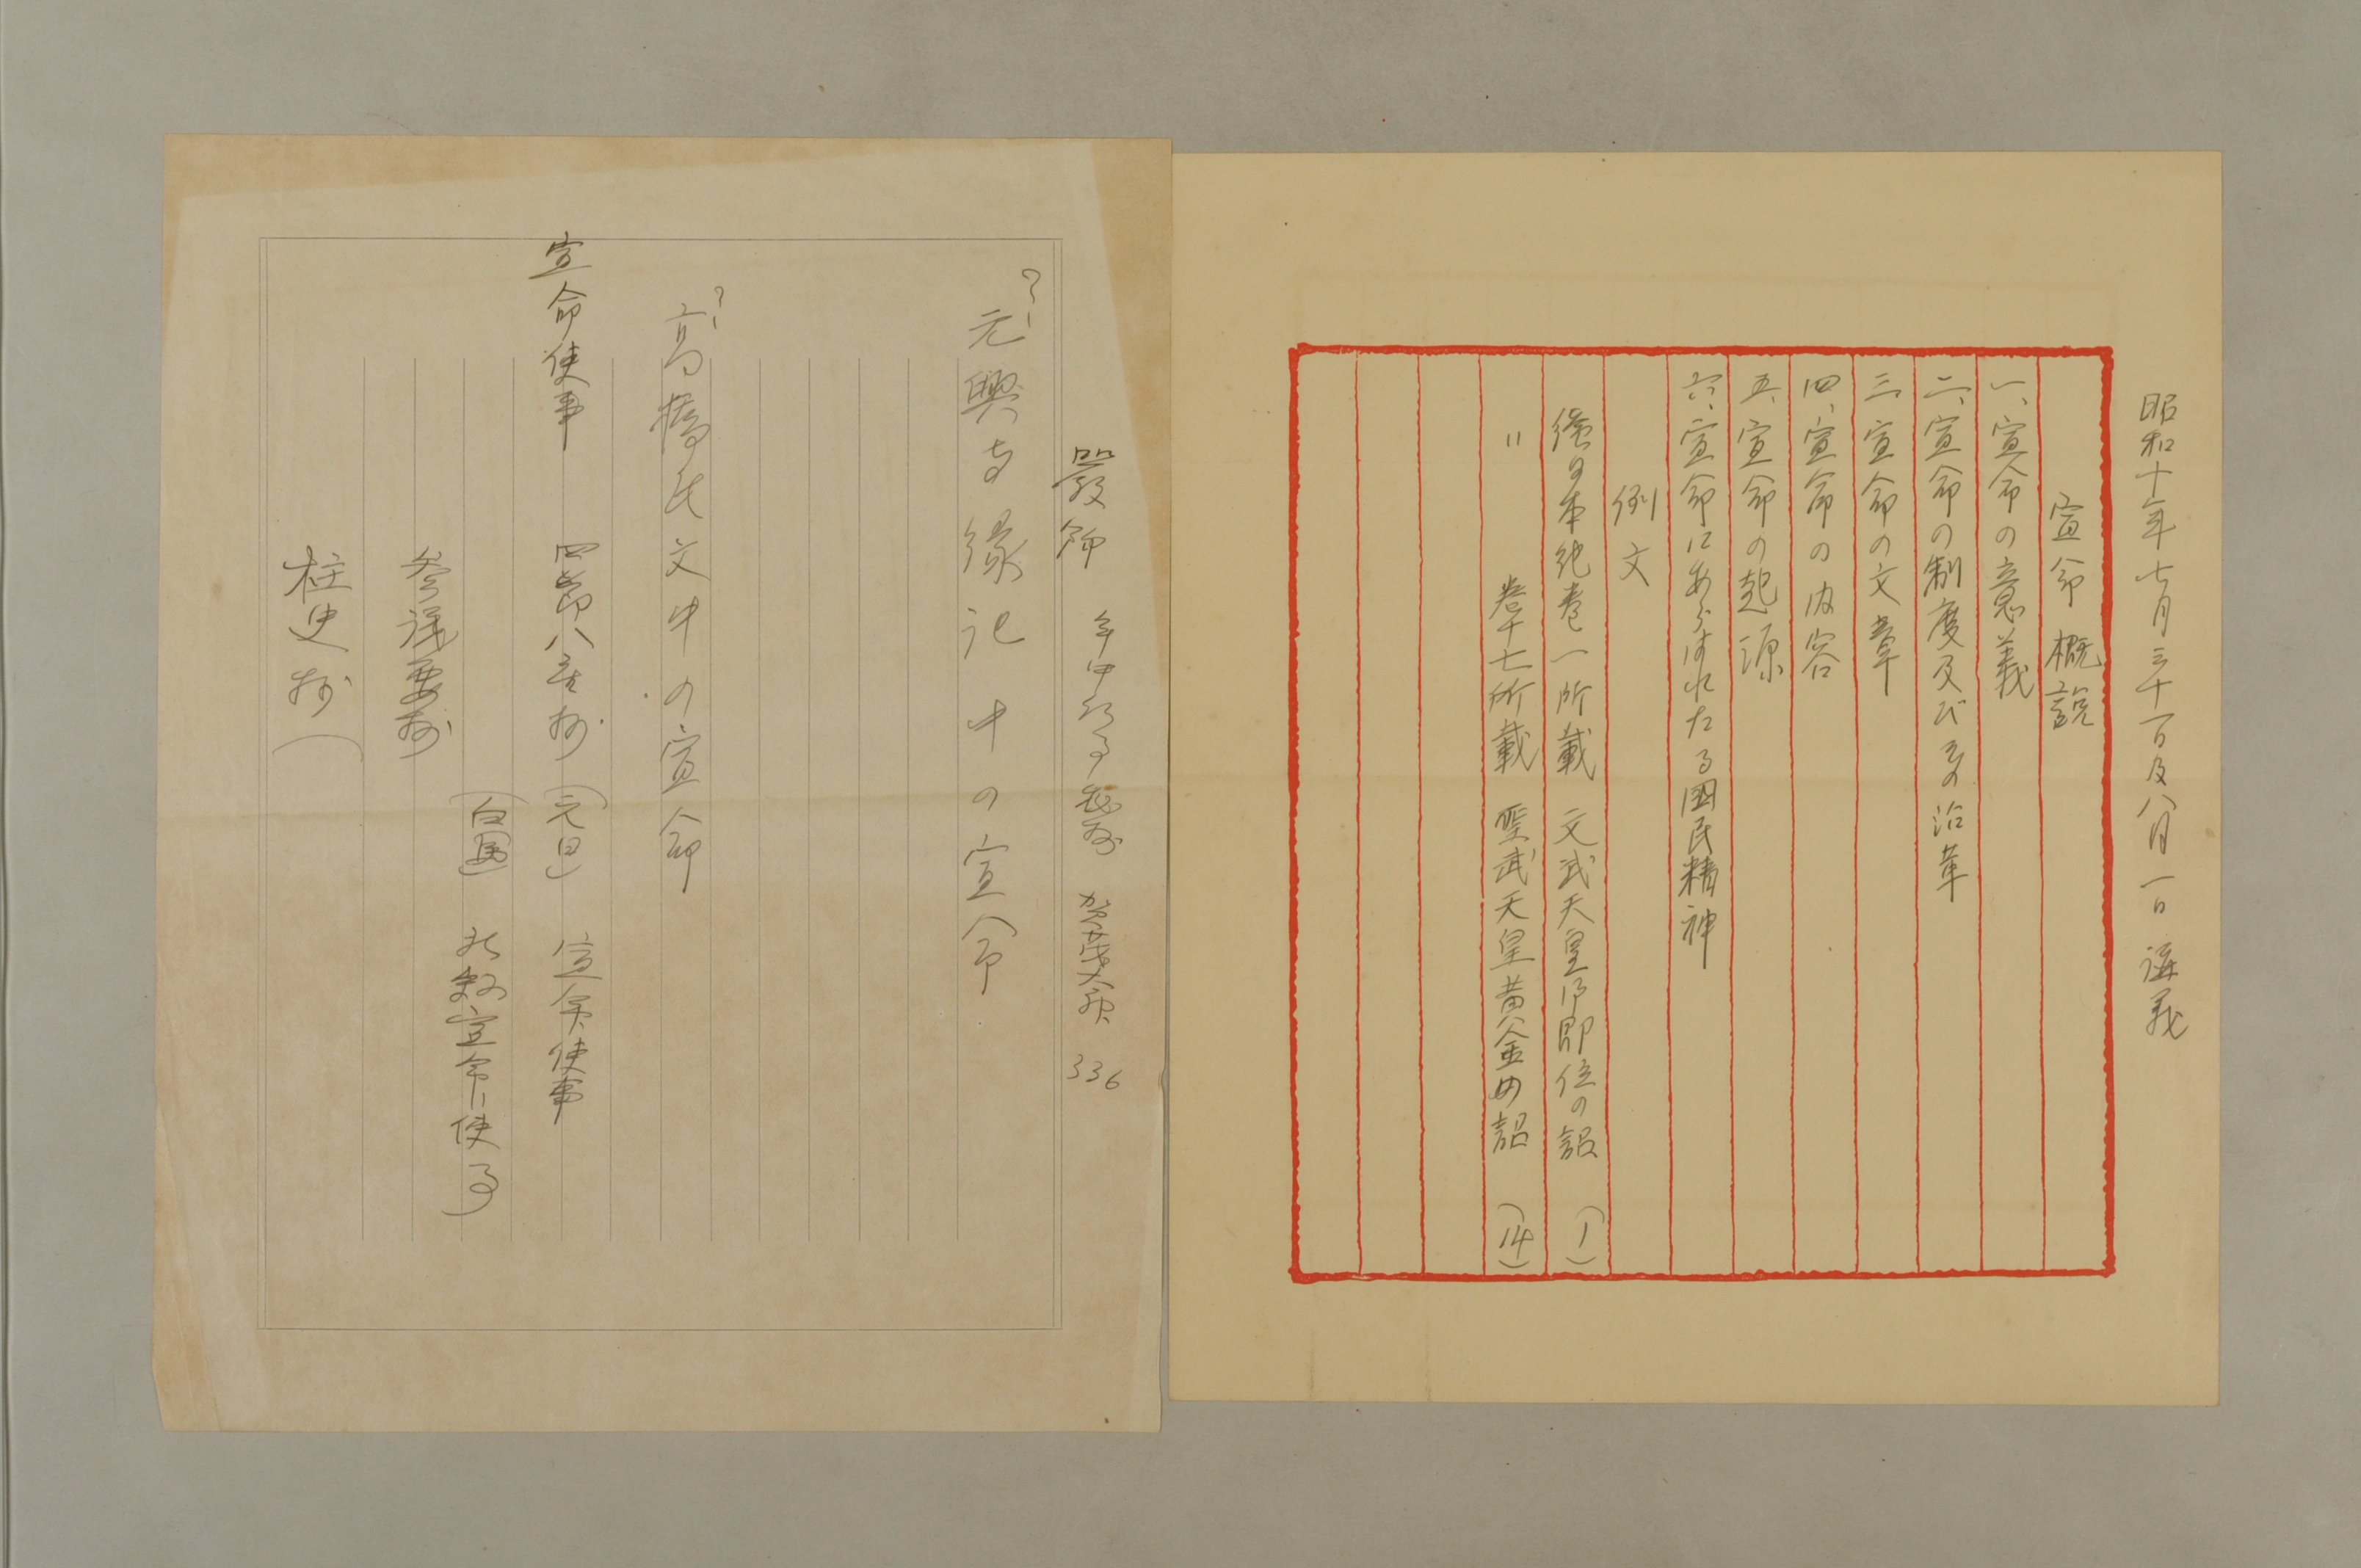 昭和十年七月三十一日及八月一日 講義
宣命概説
一、宣命の意義
二、宣命の制度及び其の沿革
三、宣命の文章
四、宣命の内容
五、宣命の起源
六、宣命にあらはれたる國民精神
例文
續日本紀卷一所載 文武天皇御即位の詔 (1)
〃 卷十七所載 聖武天皇黄金の詔 (14)
嚴命 年中行事秘抄 賀茂大祭 336
元興寺縁記中の宣命
高橋氏文中の宣命
宣命使事 四節八座抄(元日) 宣命使事
(白馬) 叙宣命使事)
参議要抄
柱史抄(